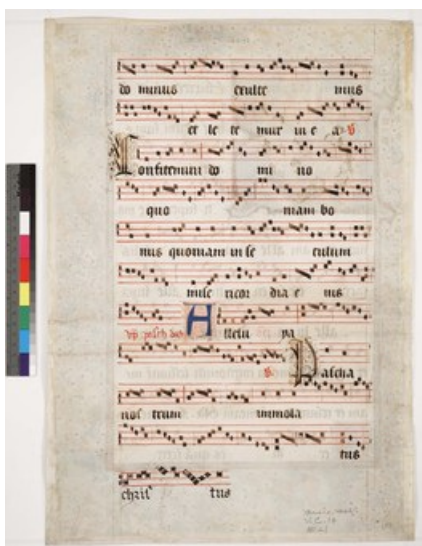 do minus exulte mus
et le te mur in e a ℣
Confitemini do mi no
quo niam bo
nus quoniam in se culum
mise ricor dia e ius
A llelu ya
℣ Pascha
nos trum immola
tus
chris tus